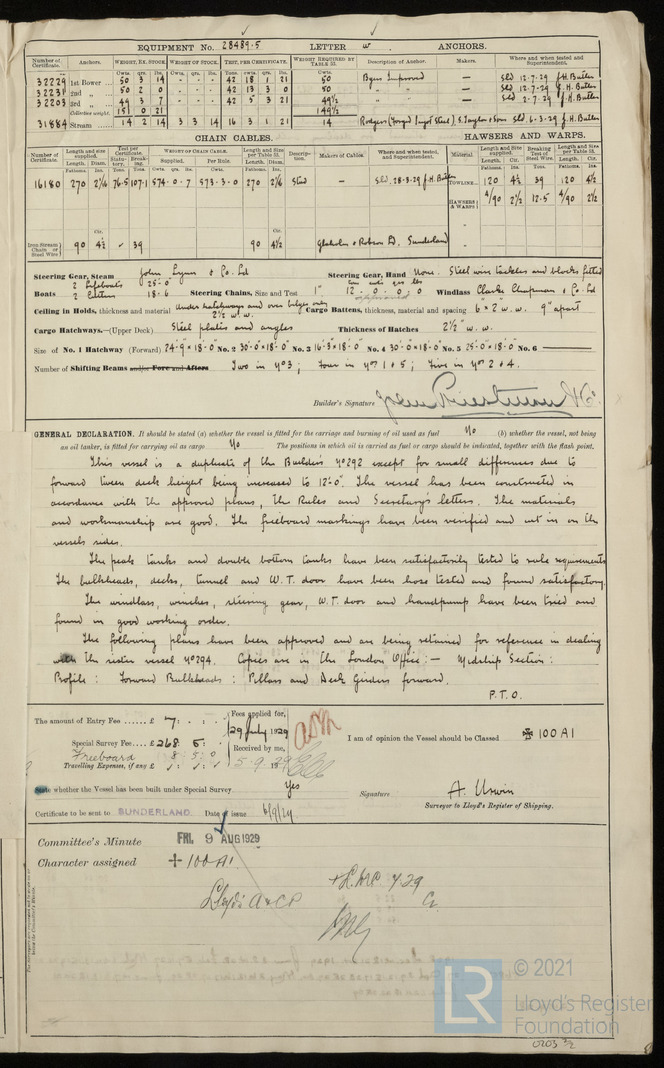 EQUIPMENT No. 28489.5 LETTER w ANCHORS.
Number of Certificate. Anchors. WEIGHT, EX. STOCK. WEIGHT OF STOCK. TEST, PER CERTIFICATE. WEIGHT REQUIRED BY TABLE 53. Description of Anchor. Makers. Where and when tested and Superintendent.
Cwts. qrs. lbs. Cwts. qrs. lbs. Tons. cwts. qrs. lbs. Cwts.
32229 1st Bower 50 3 14 - - - 42 18 1 21 50 Byers Improved — Sld 12.7.29 J.H. Butler
32231 2nd „ 50 2 0 - - - 42 13 3 0 50 „ „ — Sld 12.7.29 J.H. Butler
32203 3rd „ 49 3 7 - - - 42 5 3 21 49½ „ „ — Sld 2.7.29 J.H. Butler
Collective weight. 151 0 21 149½
31884 Stream 14 2 14 3 3 14 16 3 1 21 14 Rodgers (Forged Ingot Steel) S. Taylor & Sons Sld 6.3.29 J.H. Butler
CHAIN CABLES. HAWSERS AND WARPS.
Number of Certificate. Length and size supplied. Test per Certificate. WEIGHT OF CHAIN CABLE. Length and Size per Table 53. Description. Makers of Cables. Where and when tested, and Superintendent. Material Length and Size supplied. Breaking Test of Steel Wire. Length and Size per Table 53.
Length. Diam. Statutory. Breaking. Supplied. Per Rule. Length. Diam. Length. Cir. Length. Cir.
Fathoms. Ins. Tons. Tons. Cwts. qrs. lbs. Cwts. qrs. lbs. Fathoms. Ins. Fathoms. Ins. Tons. Fathoms. Ins.
16180 270 2 1/16 76.5 107.1 574-0-7 573-3-0 270 2 1/16 Stud - Sld. 28-3-29 J.H. Butler TOWLINE 120 4½ 39 120 4½
HAWSERS & WARPS 4/90 2½ 12.5 4/90 2½
Iron Stream Chain or Steel Wire 90 4½ ✓ 39 90 4½ Glaholm & Robson Ld, Sunderland
Steering Gear, Steam John Lynn & Co. Ld Steering Gear, Hand None. Steel wire tackles and blocks fitted
Boats 2 Lifeboats 25-0
2 Cutters 18-6 Steering Chains, Size and Test 1" 12-0-0-0 Windlass Clarke Chapman & Co. Ld
Ceiling in Holds, thickness and material Under hatchways and over bilges only 2½ w.w. Cargo Battens, thickness, material and spacing 6" x 2" w.w. 9" apart
Cargo Hatchways.—(Upper Deck) Steel plates and angles Thickness of Hatches 2½ w.w.
Size of No. 1 Hatchway (Forward) 24-9 x 18-0 No. 2 30-0 x 18-0 No. 3 16-3 x 18-0 No. 4 30-0 x 18-0 No. 5 25-0 x 18-0 No. 6 —
Number of Shifting Beams and/or Fore and Afters Two in No 3; Four in Nos 1 & 5; Five in Nos 2 & 4.
Builder's Signature
GENERAL DECLARATION. It should be stated (a) whether the vessel is fitted for the carriage and burning of oil used as fuel No (b) whether the vessel, not being
an oil tanker, is fitted for carrying oil as cargo No The positions in which oil is carried as fuel or cargo should be indicated, together with the flash point.
This vessel is a duplicate of the Builders No 292 except for small differences due to
forward tween deck height being increased to 12'-0". The vessel has been constructed in
accordance with the approved plans, the Rules and Secretary's letters. The materials
and workmanship are good. The freeboard markings have been verified and cut in on the
vessels sides.
The peak tanks and double bottom tanks have been satisfactorily tested to rule requirements.
The bulkheads, decks, tunnel and W.T. door have been hose tested and found satisfactory.
The windlass, winches, steering gear, W.T. door and handpump have been tried and
found in good working order.
The following plans have been approved and are being retained for reference in dealing
with the sister vessel No 294. Copies are in the London Office :— Midship Section :
Profile : Forward Bulkheads : Pillars and Deck Girders forward.
P.T.O.
The amount of Entry Fee £ 7 : - : - Fees applied for, 29 July 1929
Special Survey Fee £ 268 : 5 : - Received by me,
Freeboard 8 : 5 : 0
Travelling Expenses, if any £ 5.9.29
I am of opinion the Vessel should be Classed ✠ 100 A1
State whether the Vessel has been built under Special Survey Yes Signature A. Urwin
Surveyor to Lloyd's Register of Shipping.
Certificate to be sent to SUNDERLAND. Date of issue 6/9/29
Committee's Minute FRI. 9 AUG 1929
Character assigned + 100 A1
Lloyd's A & CP
+ LMC 7.29
CL
© 2021
Lloyd's Register
Foundation
LR